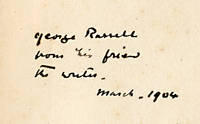 George Russell
from his friend
the writer.
March. 1904